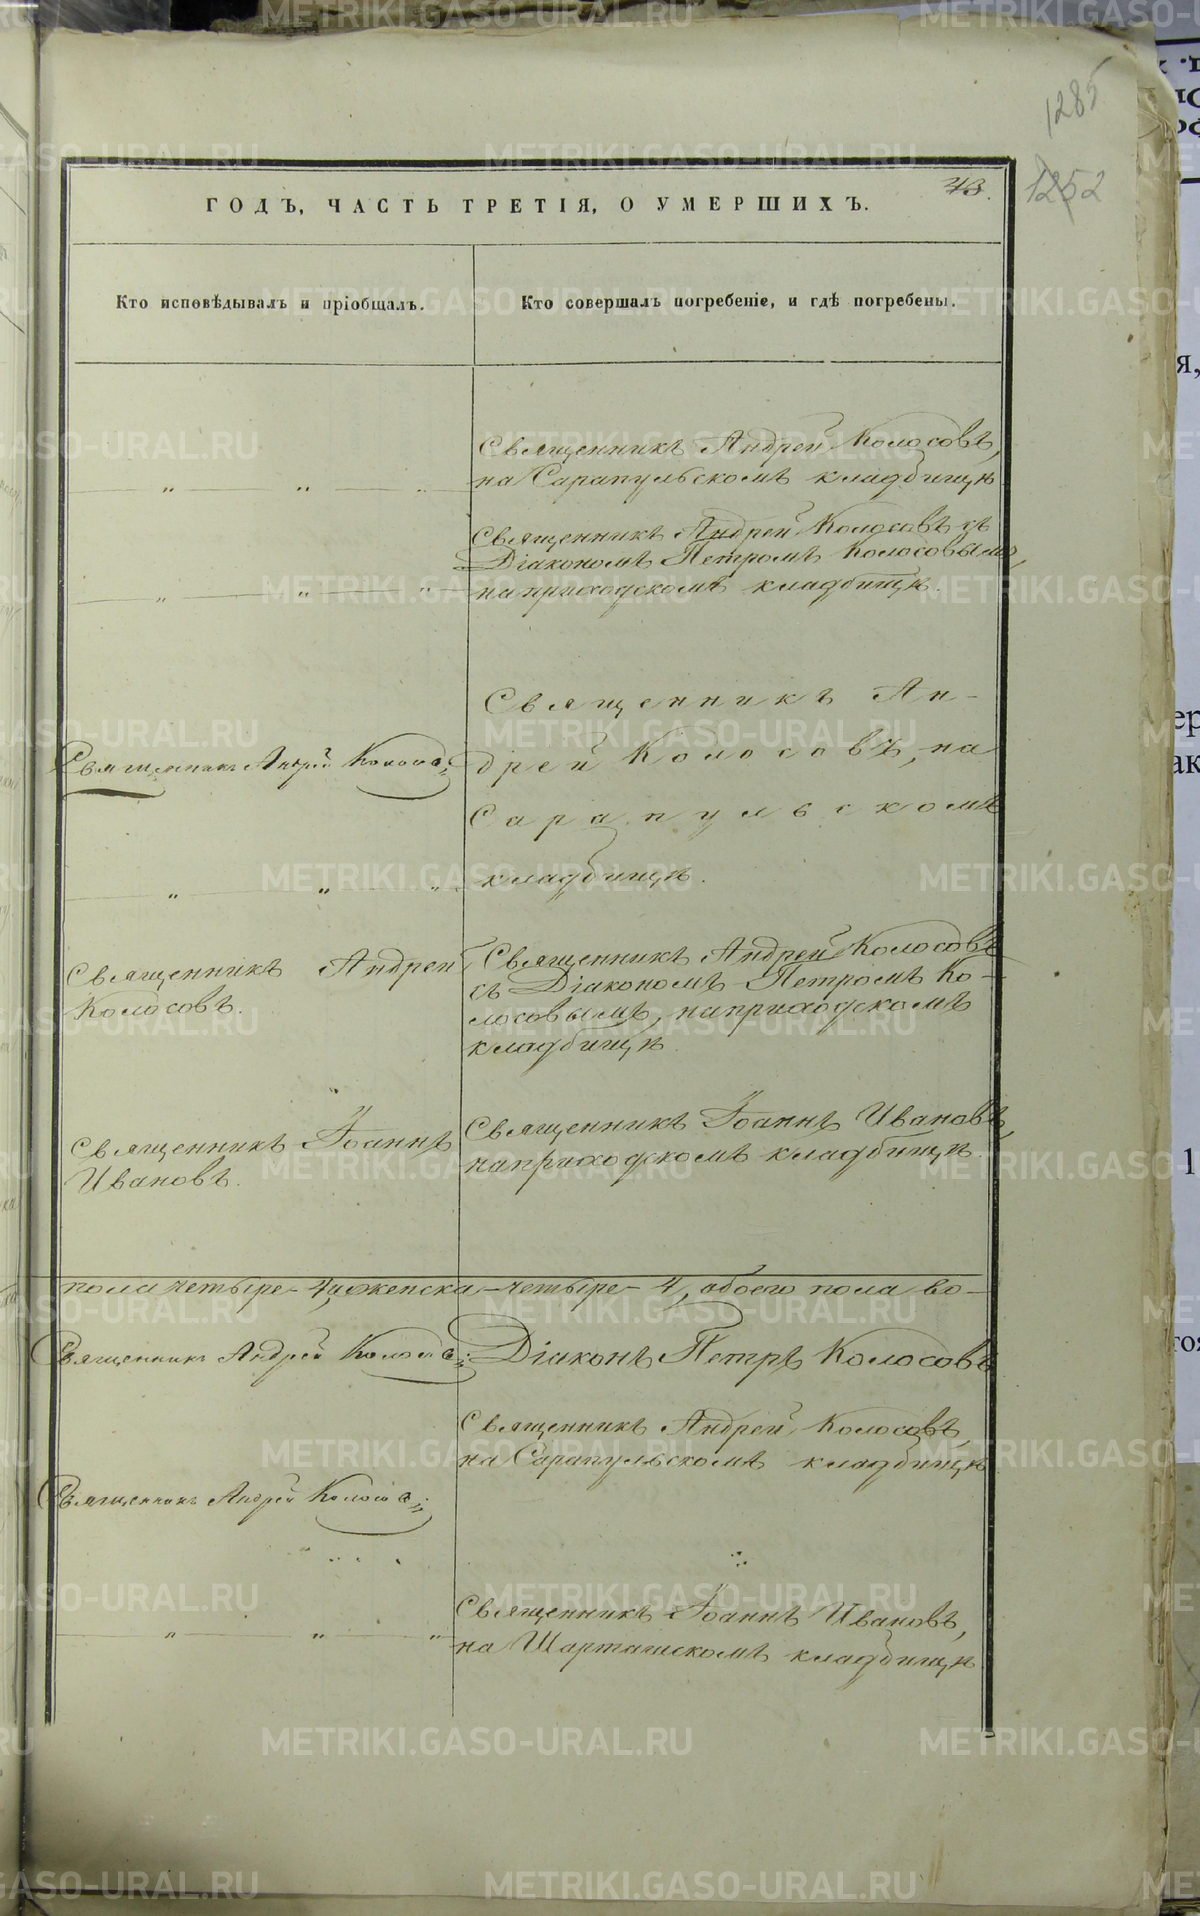 1285
1252
43.
ГОДЪ, ЧАСТЬ ТРЕТІЯ, О УМЕРШИХЪ.
Кто исповѣдывалъ и пріобщалъ.
Кто совершалъ погребеніе, и гдѣ погребены.
Священникъ Андрей Колосовъ,
на Сарапульскомъ кладбищѣ
Священникъ Андрей Колосовъ съ
Діакономъ Петромъ Колосовымъ,
на приходскомъ кладбищѣ.
Священникъ Андрей Колосовъ
Священникъ Ан-
дрей Колосовъ, на
Сарапульскомъ
кладбищѣ.
Священникъ Андрей
Колосовъ.
Священникъ Андрей Колосовъ
съ Діакономъ Петромъ Ко-
лосовымъ, на приходскомъ
кладбищѣ.
Священникъ Іоаннъ
Ивановъ.
Священникъ Іоаннъ Ивановъ,
на приходскомъ кладбищѣ.
пола четыре - 4, и женска - четыре - 4, обоего пола во-
Священникъ Андрей Колосовъ
Діаконъ Петръ Колосовъ
Священникъ Андрей Колосовъ,
на Сарапульскомъ кладбищѣ
Священникъ Андрей Колосовъ
Священникъ Іоаннъ Ивановъ,
на Шарташскомъ кладбищѣ
METRIKI.GASO-URAL.RU